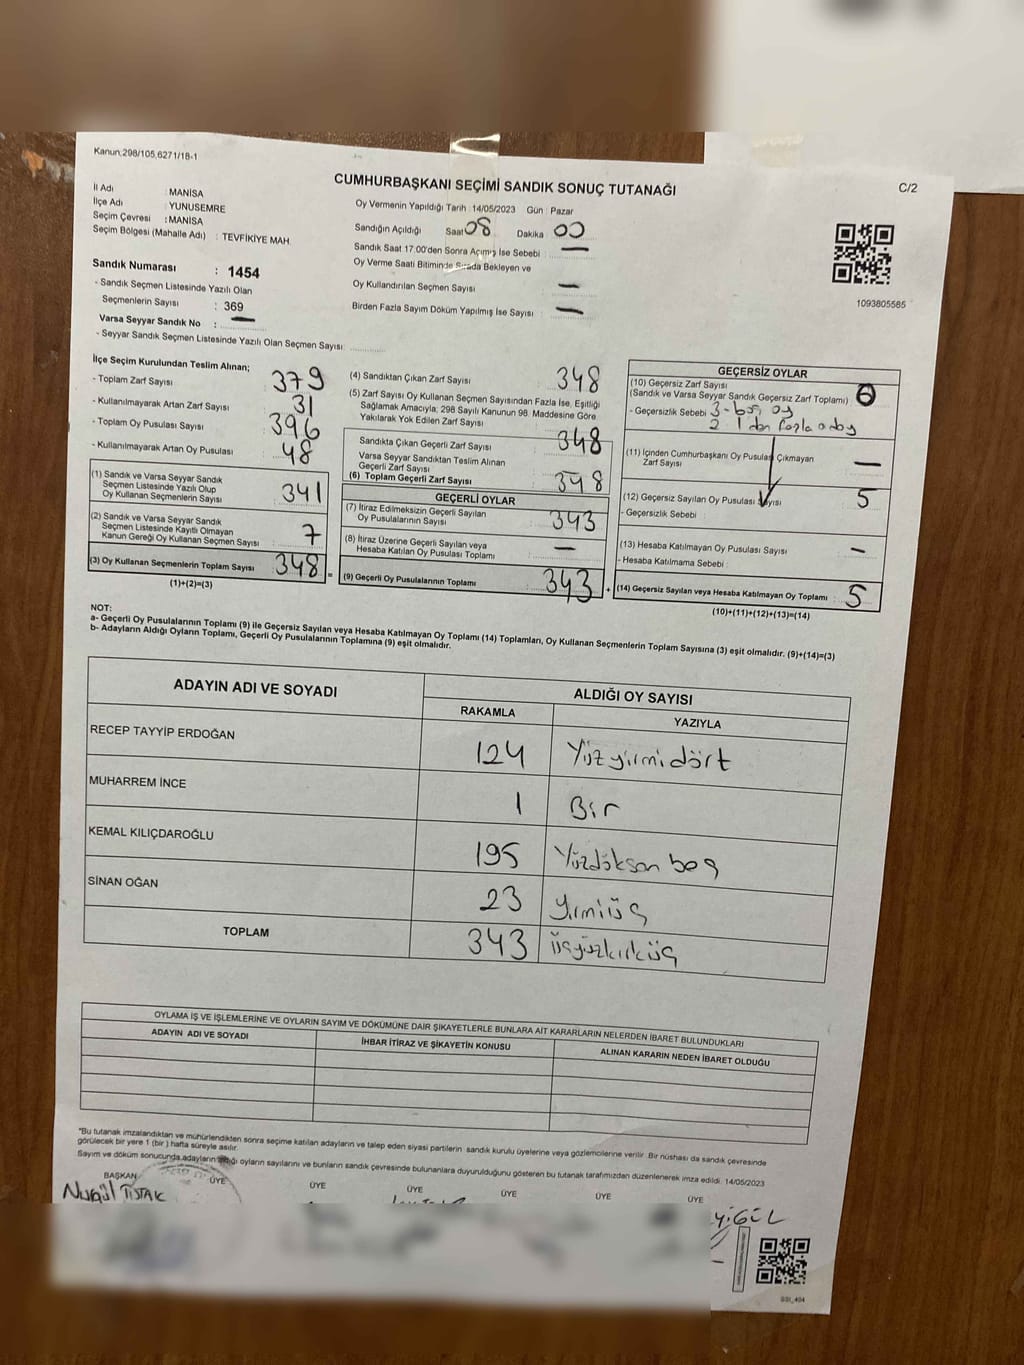 Kanun,298/105,6271/18-1
CUMHURBAŞKANI SEÇİMİ SANDIK SONUÇ TUTANAĞI
C/2
İl Adı : MANİSA
İlçe Adı : YUNUSEMRE
Seçim Çevresi : MANİSA
Seçim Bölgesi (Mahalle Adı) : TEVFİKİYE MAH.
Oy Vermenin Yapıldığı Tarih : 14/05/2023 Gün : Pazar
Sandığın Açıldığı Saat 08 Dakika 00
Sandık Saat 17:00'den Sonra Açımış İse Sebebi : —
Oy Verme Saati Bitiminde Sırada Bekleyen ve
Oy Kullandırılan Seçmen Sayısı —
Birden Fazla Sayım Döküm Yapılmış İse Sayısı : —
1093805585
Sandık Numarası : 1454
- Sandık Seçmen Listesinde Yazılı Olan
Seçmenlerin Sayısı : 369
Varsa Seyyar Sandık No : —
- Seyyar Sandık Seçmen Listesinde Yazılı Olan Seçmen Sayısı:
İlçe Seçim Kurulundan Teslim Alınan;
- Toplam Zarf Sayısı 379
- Kullanılmayarak Artan Zarf Sayısı : 31
- Toplam Oy Pusulası Sayısı 396
- Kullanılmayarak Artan Oy Pusulası : 48
(1) Sandık ve Varsa Seyyar Sandık
Seçmen Listesinde Yazılı Olup
Oy Kullanan Seçmenlerin Sayısı : 341
(2) Sandık ve Varsa Seyyar Sandık
Seçmen Listesinde Kayıtlı Olmayan
Kanun Gereği Oy Kullanan Seçmen Sayısı : 7
(3) Oy Kullanan Seçmenlerin Toplam Sayısı : 348 =
(1)+(2)=(3)
(4) Sandıktan Çıkan Zarf Sayısı : 348
(5) Zarf Sayısı Oy Kullanan Seçmen Sayısından Fazla İse, Eşitliği
Sağlamak Amacıyla; 298 Sayılı Kanunun 98. Maddesine Göre
Yakılarak Yok Edilen Zarf Sayısı :
Sandıkta Çıkan Geçerli Zarf Sayısı : 348
Varsa Seyyar Sandıktan Teslim Alınan
Geçerli Zarf Sayısı
(6) Toplam Geçerli Zarf Sayısı : 348
GEÇERLİ OYLAR
(7) İtiraz Edilmeksizin Geçerli Sayılan
Oy Pusulalarının Sayısı : 343
(8) İtiraz Üzerine Geçerli Sayılan veya
Hesaba Katılan Oy Pusulası Toplamı : —
(9) Geçerli Oy Pusulalarının Toplamı : 343 +
GEÇERSİZ OYLAR
(10) Geçersiz Zarf Sayısı
(Sandık ve Varsa Seyyar Sandık Geçersiz Zarf Toplamı) : 0
- Geçersizlik Sebebi : 3- boş oy
2 1 den fazla oy
(11) İçinden Cumhurbaşkanı Oy Pusulası Çıkmayan
Zarf Sayısı —
(12) Geçersiz Sayılan Oy Pusulası Sayısı 5
- Geçersizlik Sebebi :
(13) Hesaba Katılmayan Oy Pusulası Sayısı —
- Hesaba Katılmama Sebebi :
(14) Geçersiz Sayılan veya Hesaba Katılmayan Oy Toplamı : 5
(10)+(11)+(12)+(13)=(14)
NOT:
a- Geçerli Oy Pusulalarının Toplamı (9) ile Geçersiz Sayılan veya Hesaba Katılmayan Oy Toplamı (14) Toplamları, Oy Kullanan Seçmenlerin Toplam Sayısına (3) eşit olmalıdır. (9)+(14)=(3)
b- Adayların Aldığı Oyların Toplamı, Geçerli Oy Pusulalarının Toplamına (9) eşit olmalıdır.
ADAYIN ADI VE SOYADI
ALDIĞI OY SAYISI
RAKAMLA YAZIYLA
RECEP TAYYİP ERDOĞAN 124 Yüzyirmidört
MUHARREM İNCE 1 Bir
KEMAL KILIÇDAROĞLU 195 Yüzdoksan beş
SİNAN OĞAN 23 Yirmiüç
TOPLAM 343 üçyüzkırküç
OYLAMA İŞ VE İŞLEMLERİNE VE OYLARIN SAYIM VE DÖKÜMÜNE DAİR ŞİKAYETLERLE BUNLARA AİT KARARLARIN NELERDEN İBARET BULUNDUKLARI
ADAYIN ADI VE SOYADI İHBAR İTİRAZ VE ŞİKAYETİN KONUSU ALINAN KARARIN NEDEN İBARET OLDUĞU
"Bu tutanak imzalandıktan ve mühürlendikten sonra seçime katılan adayların ve talep eden siyasi partilerin sandık kurulu üyelerine veya gözlemcilerine verilir. Bir nüshası da sandık çevresinde
görülecek bir yere 1 (bir ) hafta süreyle asılır.
Sayım ve döküm sonucunda adayların aldığı oyların sayılarını ve bunların sandık çevresinde bulunanlara duyurulduğunu gösteren bu tutanak tarafımızdan düzenlenerek imza edildi. 14/05/2023
BAŞKAN ÜYE ÜYE ÜYE ÜYE ÜYE ÜYE
Nurgül TISTAK
YİGÜL